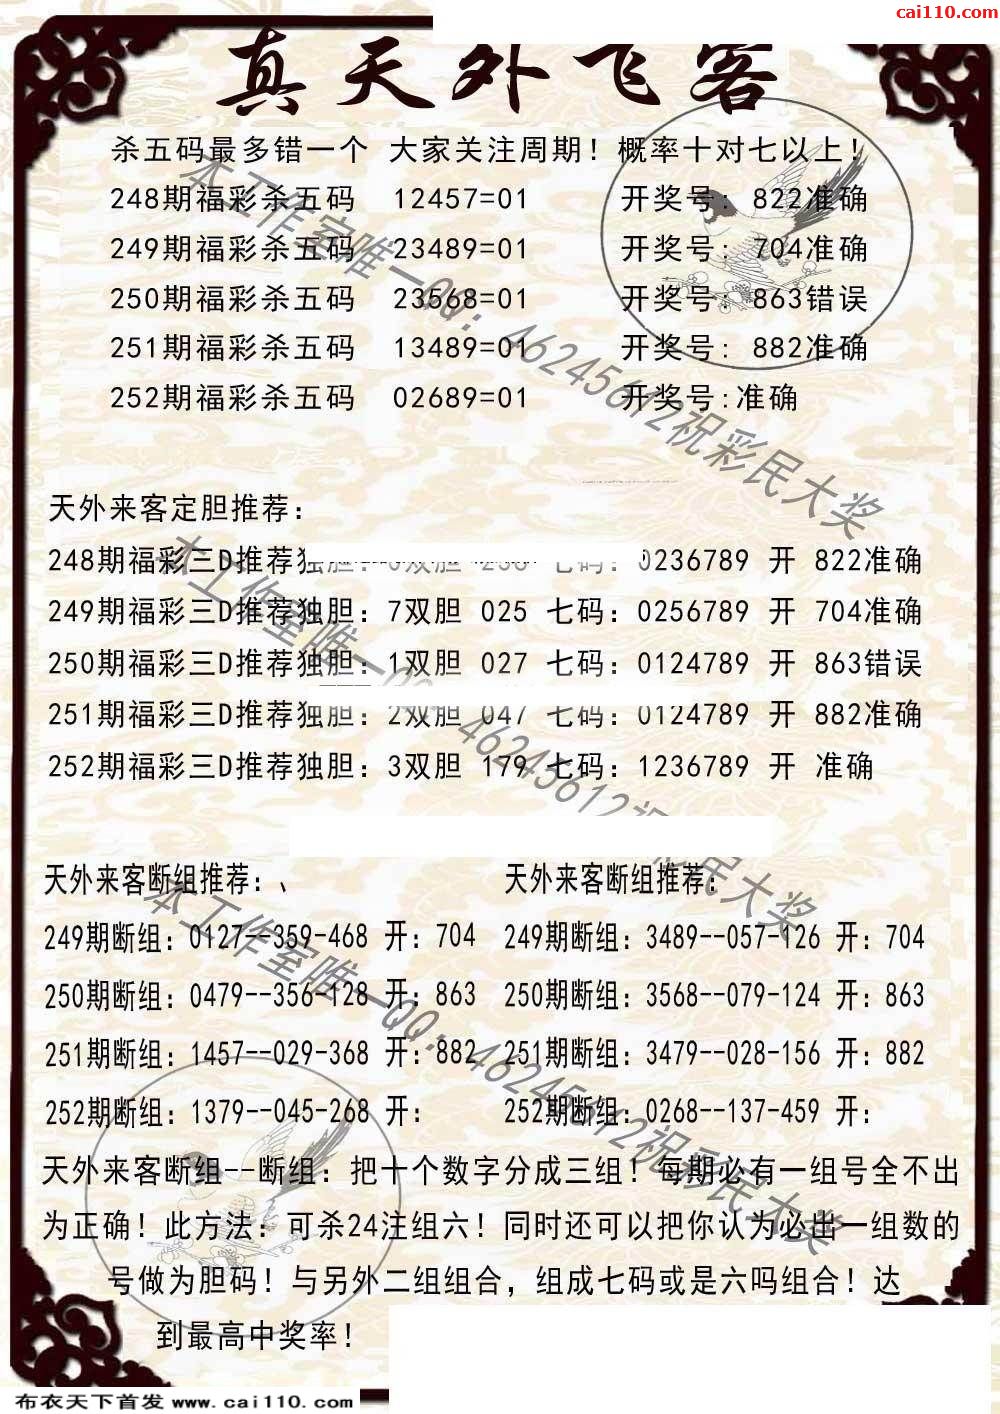 cai110.com
真天外飞客
杀五码最多错一个 大家关注周期！概率十对七以上！
248期福彩杀五码 12457=01 开奖号: 822准确
249期福彩杀五码 23489=01 开奖号: 704准确
250期福彩杀五码 23568=01 开奖号: 863错误
251期福彩杀五码 13489=01 开奖号: 882准确
252期福彩杀五码 02689=01 开奖号:准确
本工作室唯一QQ：46245612祝彩民大奖
天外来客定胆推荐：
248期福彩三D推荐独胆： 双胆 七码：0236789 开 822准确
249期福彩三D推荐独胆：7双胆 025 七码：0256789 开 704准确
250期福彩三D推荐独胆：1双胆 027 七码：0124789 开 863错误
251期福彩三D推荐独胆：2双胆 047 七码：0124789 开 882准确
252期福彩三D推荐独胆：3双胆 179 七码：1236789 开 准确
本工作室唯一QQ：46245612祝彩民大奖
天外来客断组推荐：、 天外来客断组推荐：
249期断组：0127--359-468 开：704 249期断组：3489--057-126 开：704
250期断组：0479--356-128 开：863 250期断组：3568--079-124 开：863
251期断组：1457--029-368 开：882 251期断组：3479--028-156 开：882
252期断组：1379--045-268 开： 252期断组：0268--137-459 开：
本工作室唯一QQ：46245612祝彩民大奖
天外来客断组--断组：把十个数字分成三组！每期必有一组号全不出
为正确！此方法：可杀24注组六！同时还可以把你认为必出一组数的
号做为胆码！与另外二组组合，组成七码或是六吗组合！达
到最高中奖率！
布衣天下首发 www.cai110.com